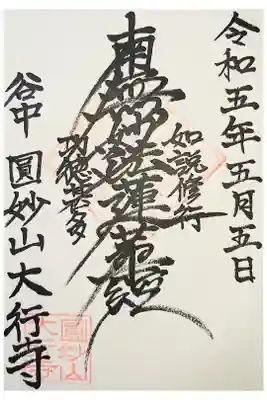 令和五年五月五日
如説修行
南無妙法蓮華經
功徳甚多
谷中 圓妙山大行寺
圓妙山
大行寺